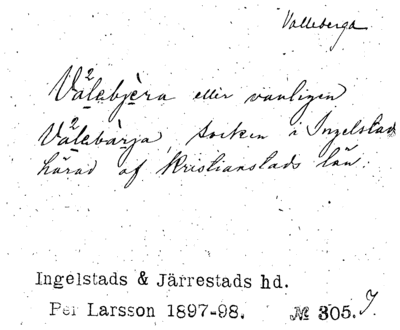 Valleberga
Välebjèra eller vanligen
Välebàrja, socken i Ingelstads
härad af Kristianstads län.
Ingelstads & Järrestads hd.
Per Larsson 1897-98. № 305.